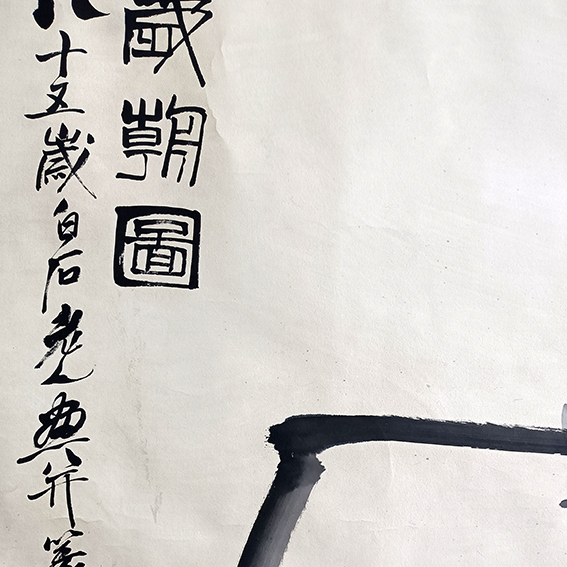 歲朝圖
八十五歲白石老人畫并篆